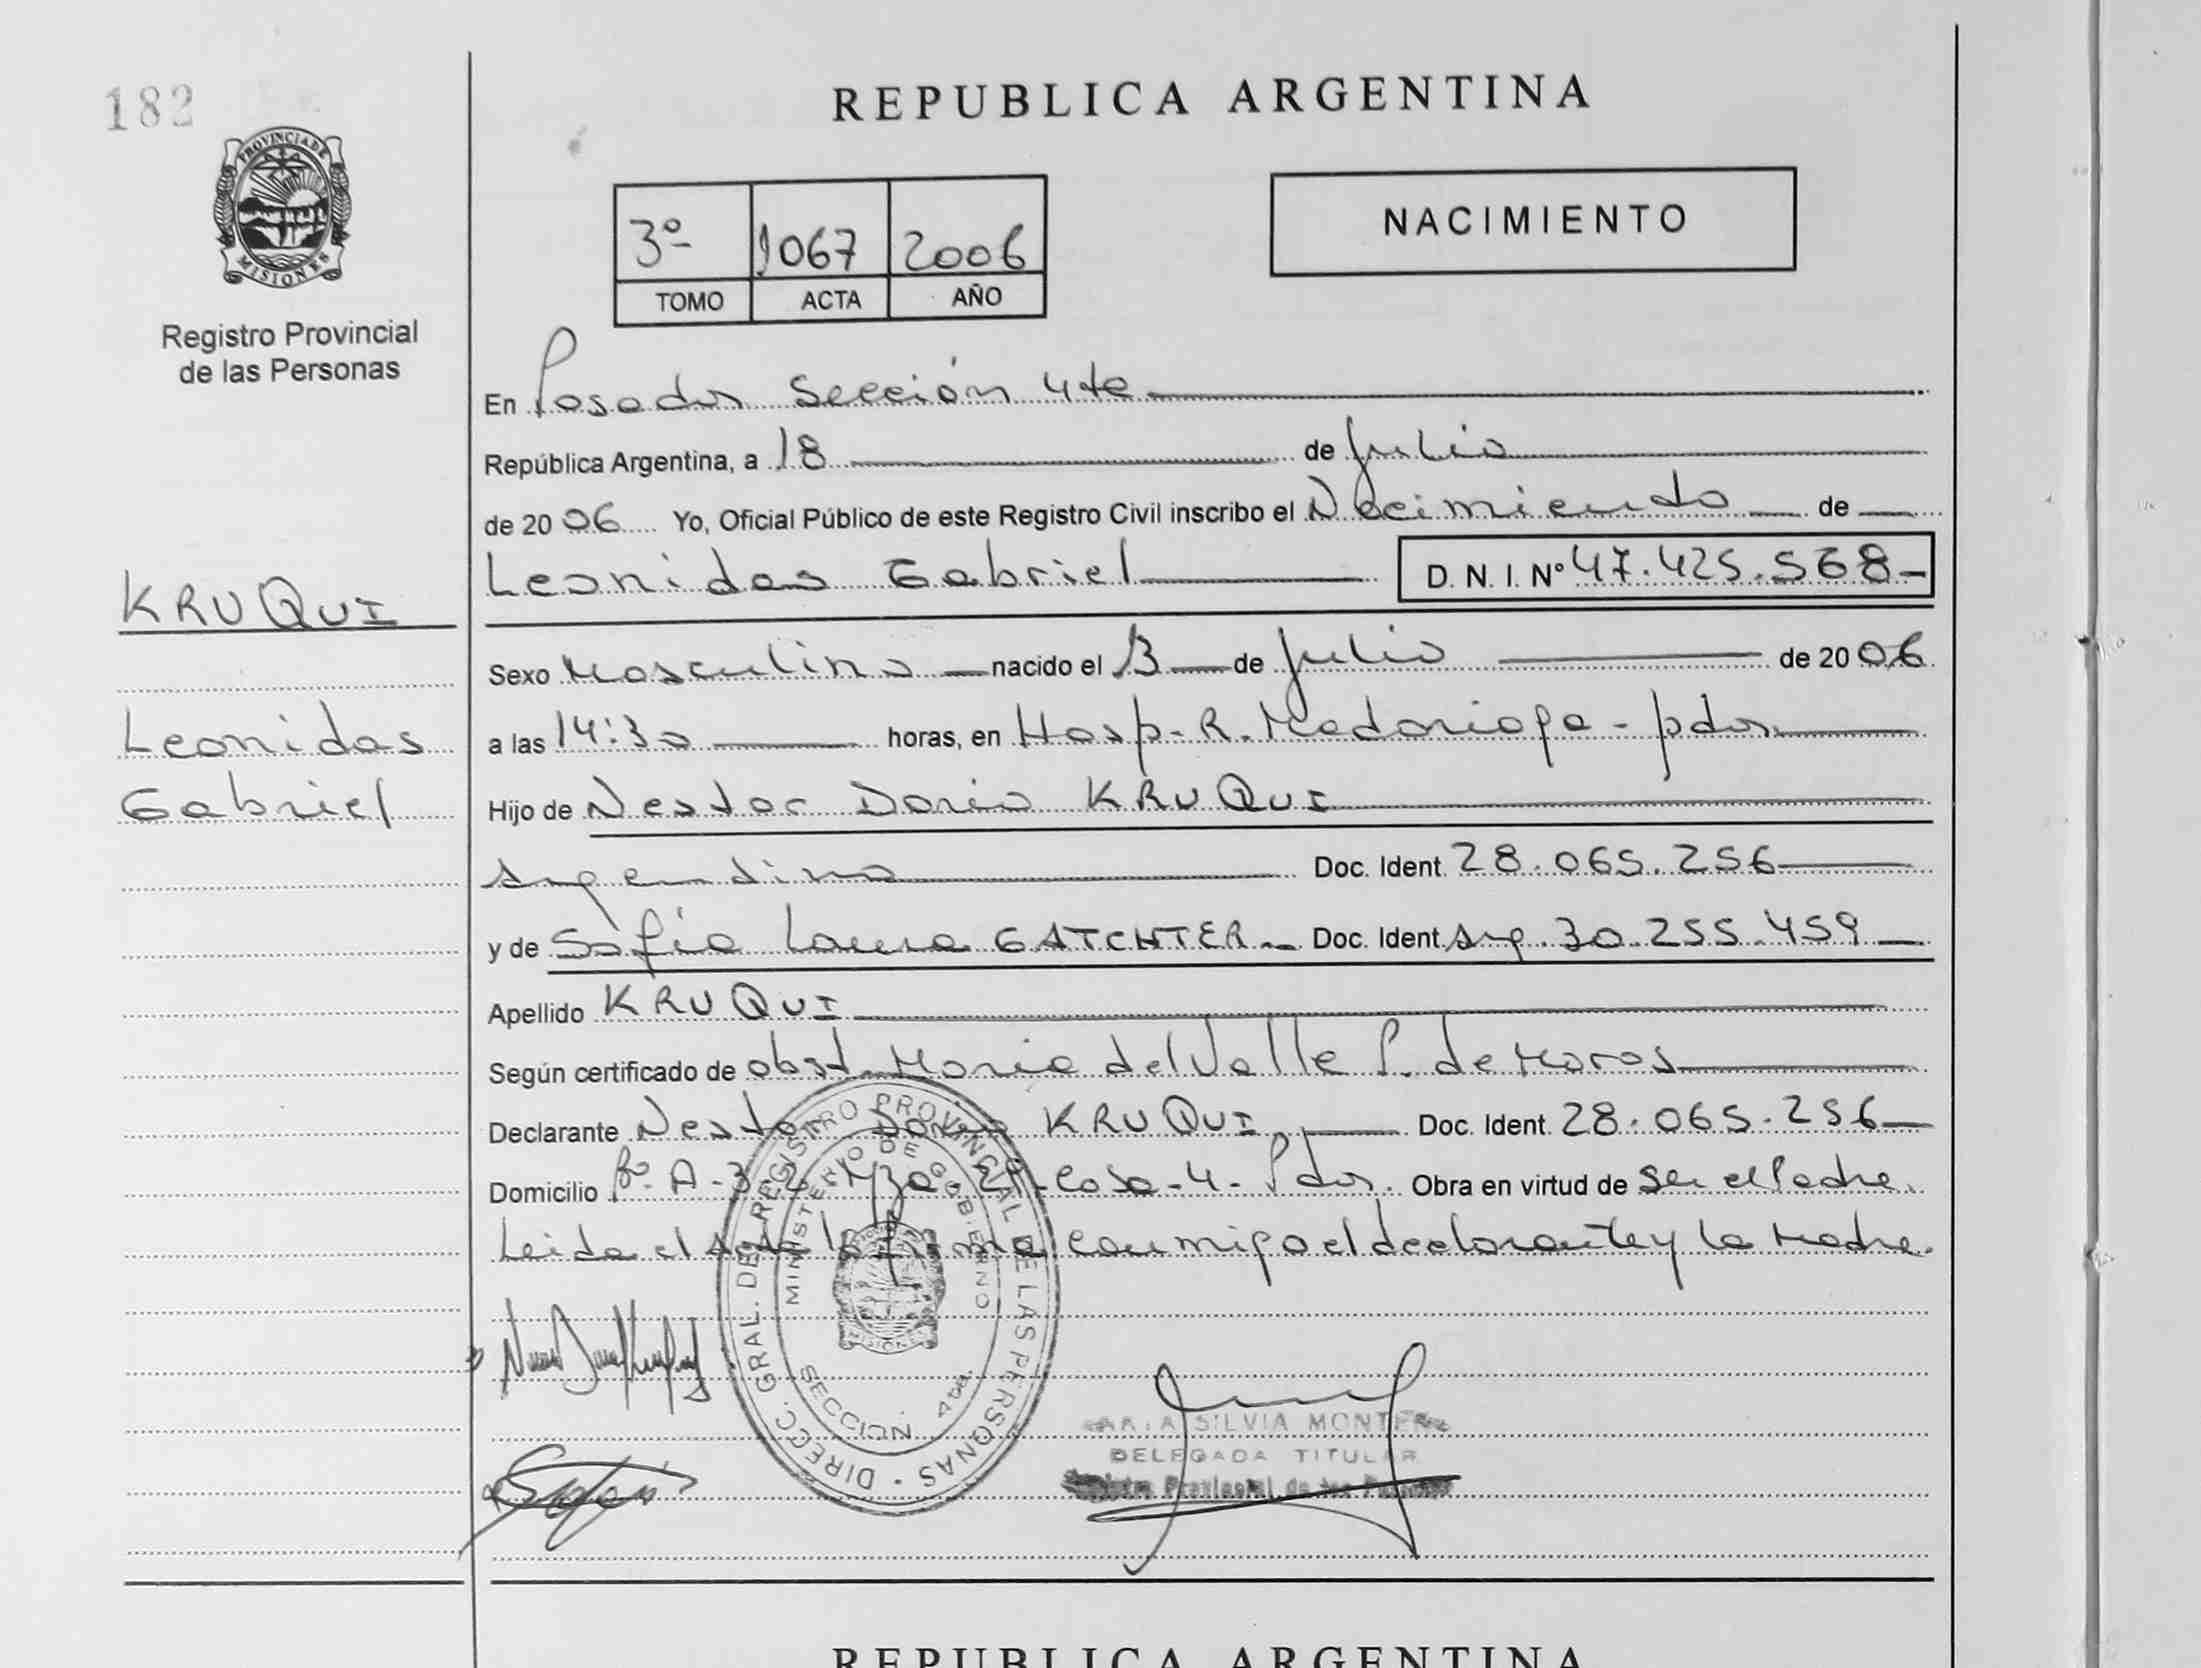 182
PROVINCIA DE
MISIONES
Registro Provincial
de las Personas
REPUBLICA ARGENTINA
3º 1067 2006
TOMO ACTA AÑO
NACIMIENTO
En Posadas Sección 4ta
República Argentina, a 18 de Julio
de 2006 Yo, Oficial Público de este Registro Civil inscribo el Nacimiento de
Leonidas Gabriel D. N. I. Nº 47.425.568
KRUQUI
Leonidas
Gabriel
Sexo Masculino nacido el 13 de Julio de 2006
a las 14:30 horas, en Hosp. R. Madariaga - pdas.
Hijo de Nestor Dario KRUQUI
argentino Doc. Ident. 28.065.256
y de Sofía Laura GATCHTER Doc. Ident. arg. 30.255.459
Apellido KRUQUI
Según certificado de obst. Maria del Valle P. de Moras
Declarante Nestor Dario KRUQUI Doc. Ident. 28.065.256
Domicilio Bº A-3-2 Mza. Casa-4- Pdas. Obra en virtud de ser el Padre.
Leida el acta la firma conmigo el declarante y la Madre.
DIRECC. GRAL. DEL REGISTRO PROVINCIAL DE LAS PERSONAS
MINISTERIO DE GOBIERNO
SECCION 4ta.
SILVIA MONTE
DELEGADA TITULAR
Provincial de las
REPUBLICA ARGENTINA